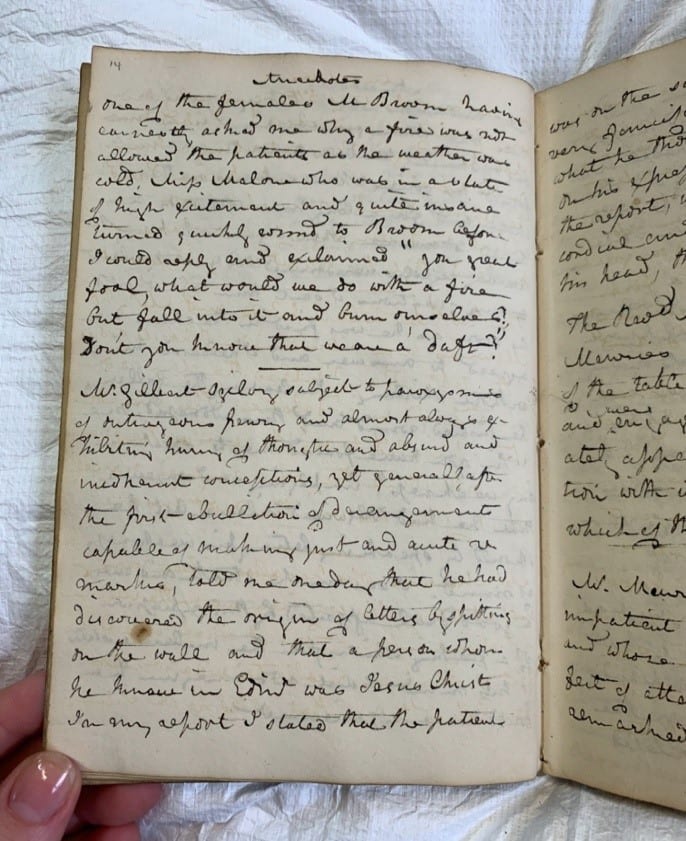 14
Anecdotes
one of the females M Broom having
earnestly asked me why a fire was not
allowed the patients as the weather was
cold. Miss Malone who was in a state
of high excitement and quite insane
turned quickly round to Broom before
I could reply and exclaimed "you great
fool, what would we do with a fire
but fall into it and burn ourselves?
Don't you know that we are a' daft?"
Mr. Gilbert subject to paroxysms
of outrageous frenzy and almost always ex-
hibiting hurry of thought and absurd and
incoherent conceptions, yet generally after
the first ebullition of derangement
capable of making just and acute re
marks, told me one day that he had
discovered the origin of letters by spitting
on the wall and that a person whom
he knew in Edinr was Jesus Christ
In my report I stated that the patient
was on the
very
what he
on his
the report,
cordial
his head,
The Revd
of the table
were
and
tion with
which of the
Mr.
impatient
and whose
remarked